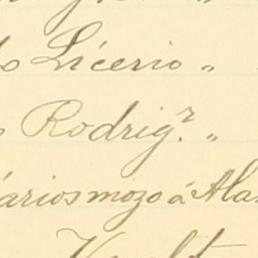 o Licerio "
o Rodrigr. "
ários mozo á Ala